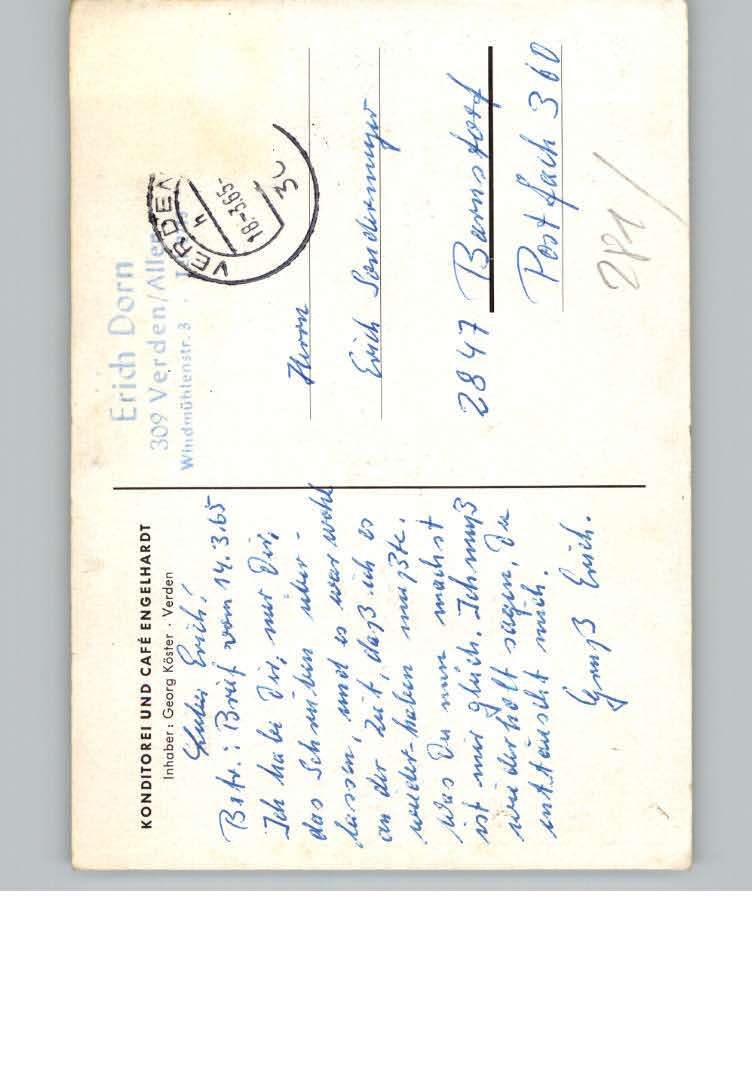 KONDITOREI UND CAFÉ ENGELHARDT
Inhaber: Georg Köster · Verden
Lieber Erich!
Betr.: Brief vom 14.3.65
Ich habe Dir, nur Dir,
das Schreiben über-
lassen, und es war wohl
an der Zeit, daß ich es
wieder haben mußte.
Was Du nun machst
ist mir gleich. Ich muß
wiederholt sagen, Du
enttäuscht mich.
Gruß Erich.
Erich Dorn
309 Verden/Aller
Windmühlenstr. 3
VERDEN
h
18.-3.65-
Herrn
Erich Sandermeyer
2847 Barnstorf
Postfach 360
281/